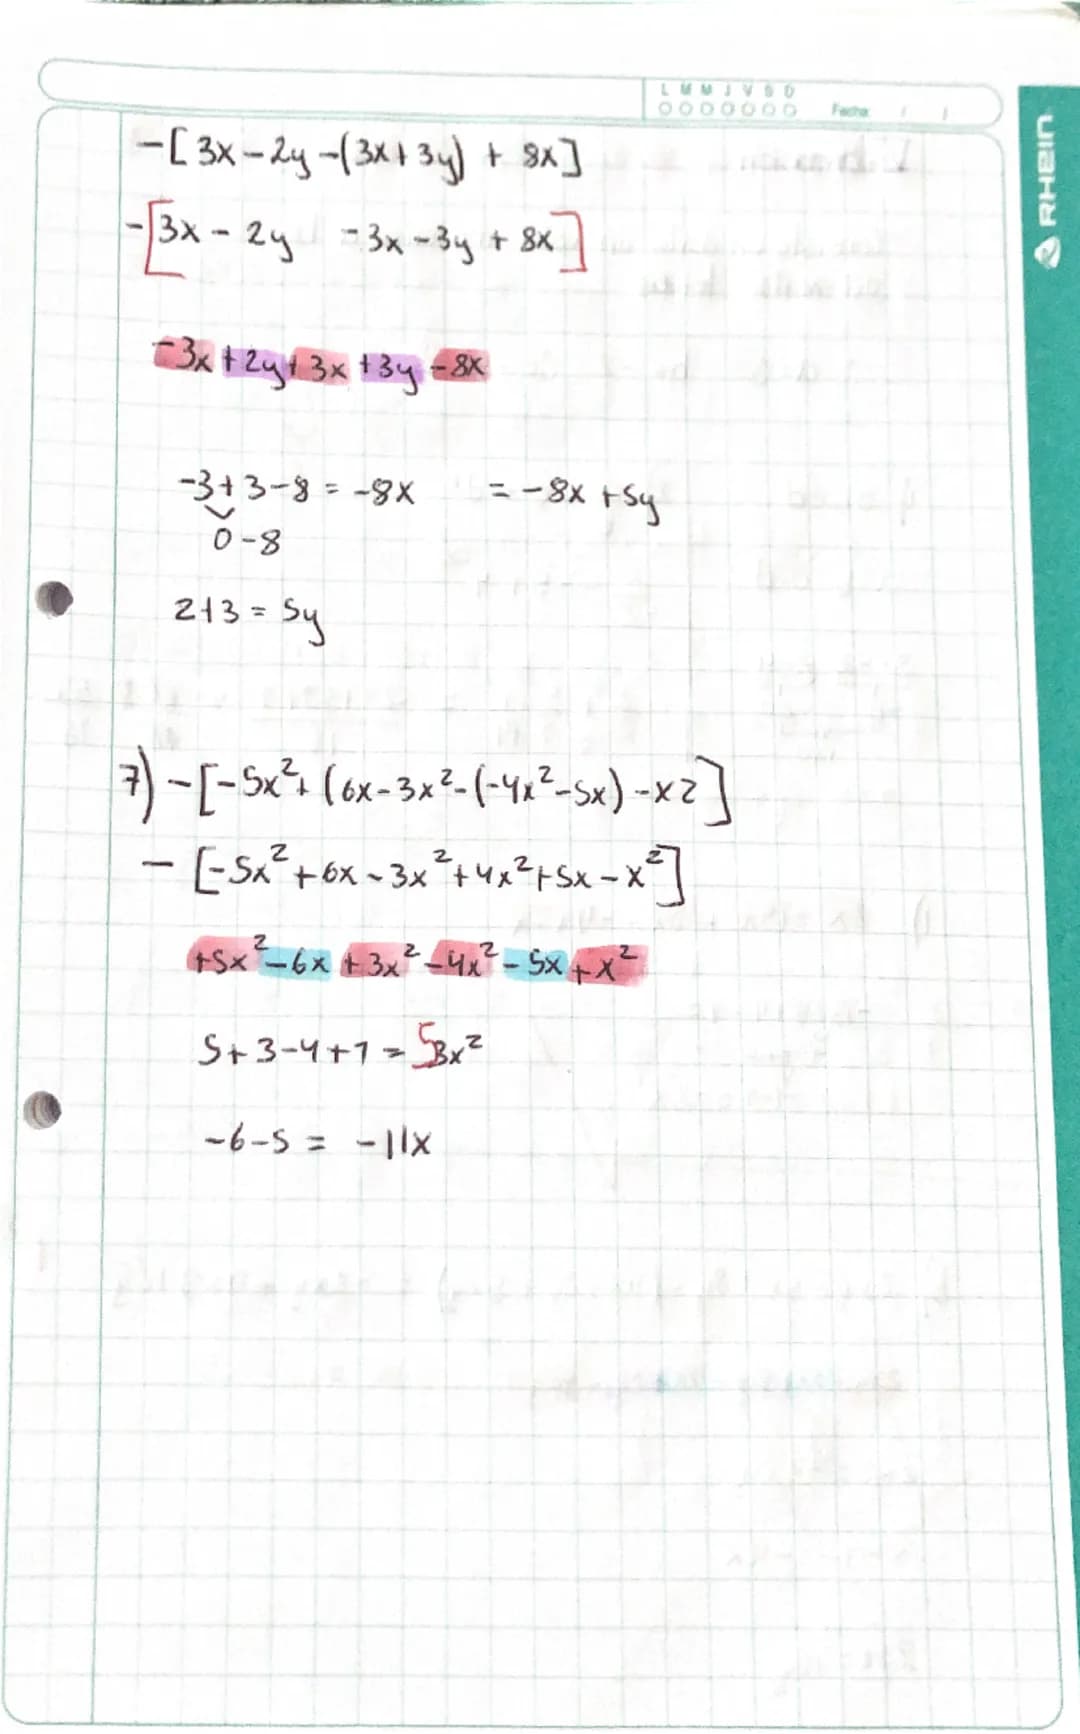 L M M J V S D
Fecha / /
RHEIN
-[3x-2y-(3x+3y) + 8x]
-[3x - 2y -3x-3y + 8x]
-3x+2y+3x+3y-8x
-3+3-8 = -8x = -8x +5y
0-8
2+3 = 5y
7) -[-5x²+(6x-3x²-(-4x²-5x)-x2]
- [-5x²+6x-3x²+4x²+5x-x²]
+5x²-6x+3x²-4x²-5x+x²
5+3-4+1=5x²
-6-5 = -11x